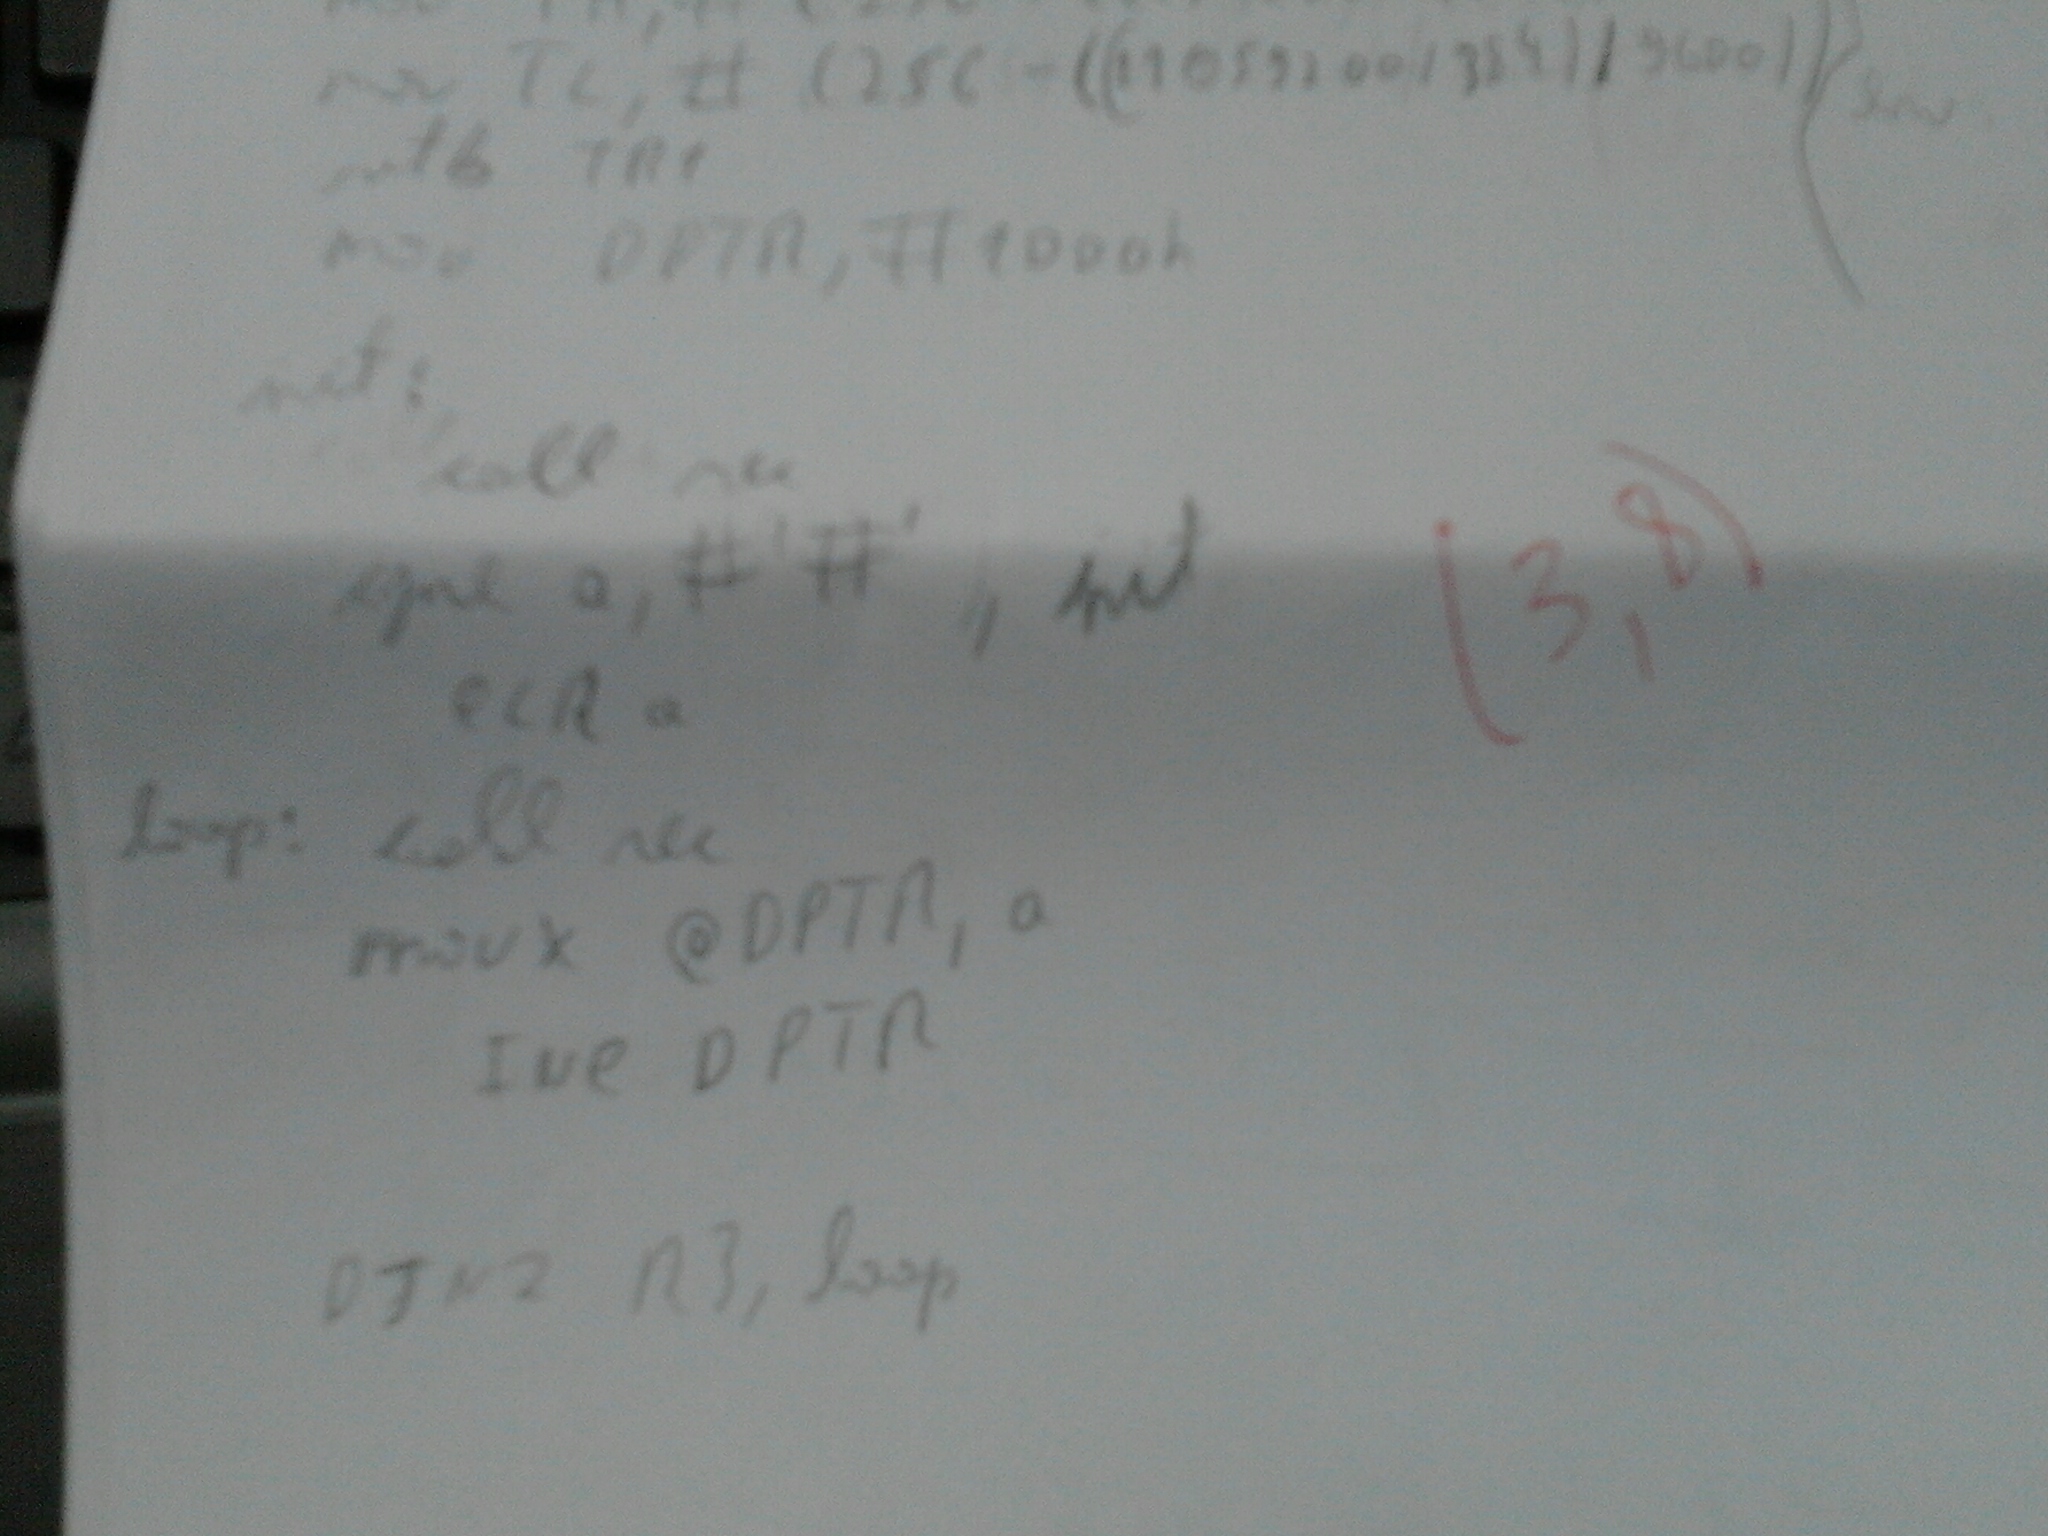 mov TL, # (256 - ((11059200/384)/9600))
setb TR1
mov DPTR, #1000h
init:
call rec
cjne a, #'#', init
CLR a
(3,8)
loop: call rec
movx @DPTR, a
INC DPTR
DJNZ R3, loop